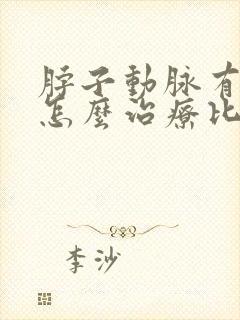 脖子動脉有
怎麼治療比
李沙